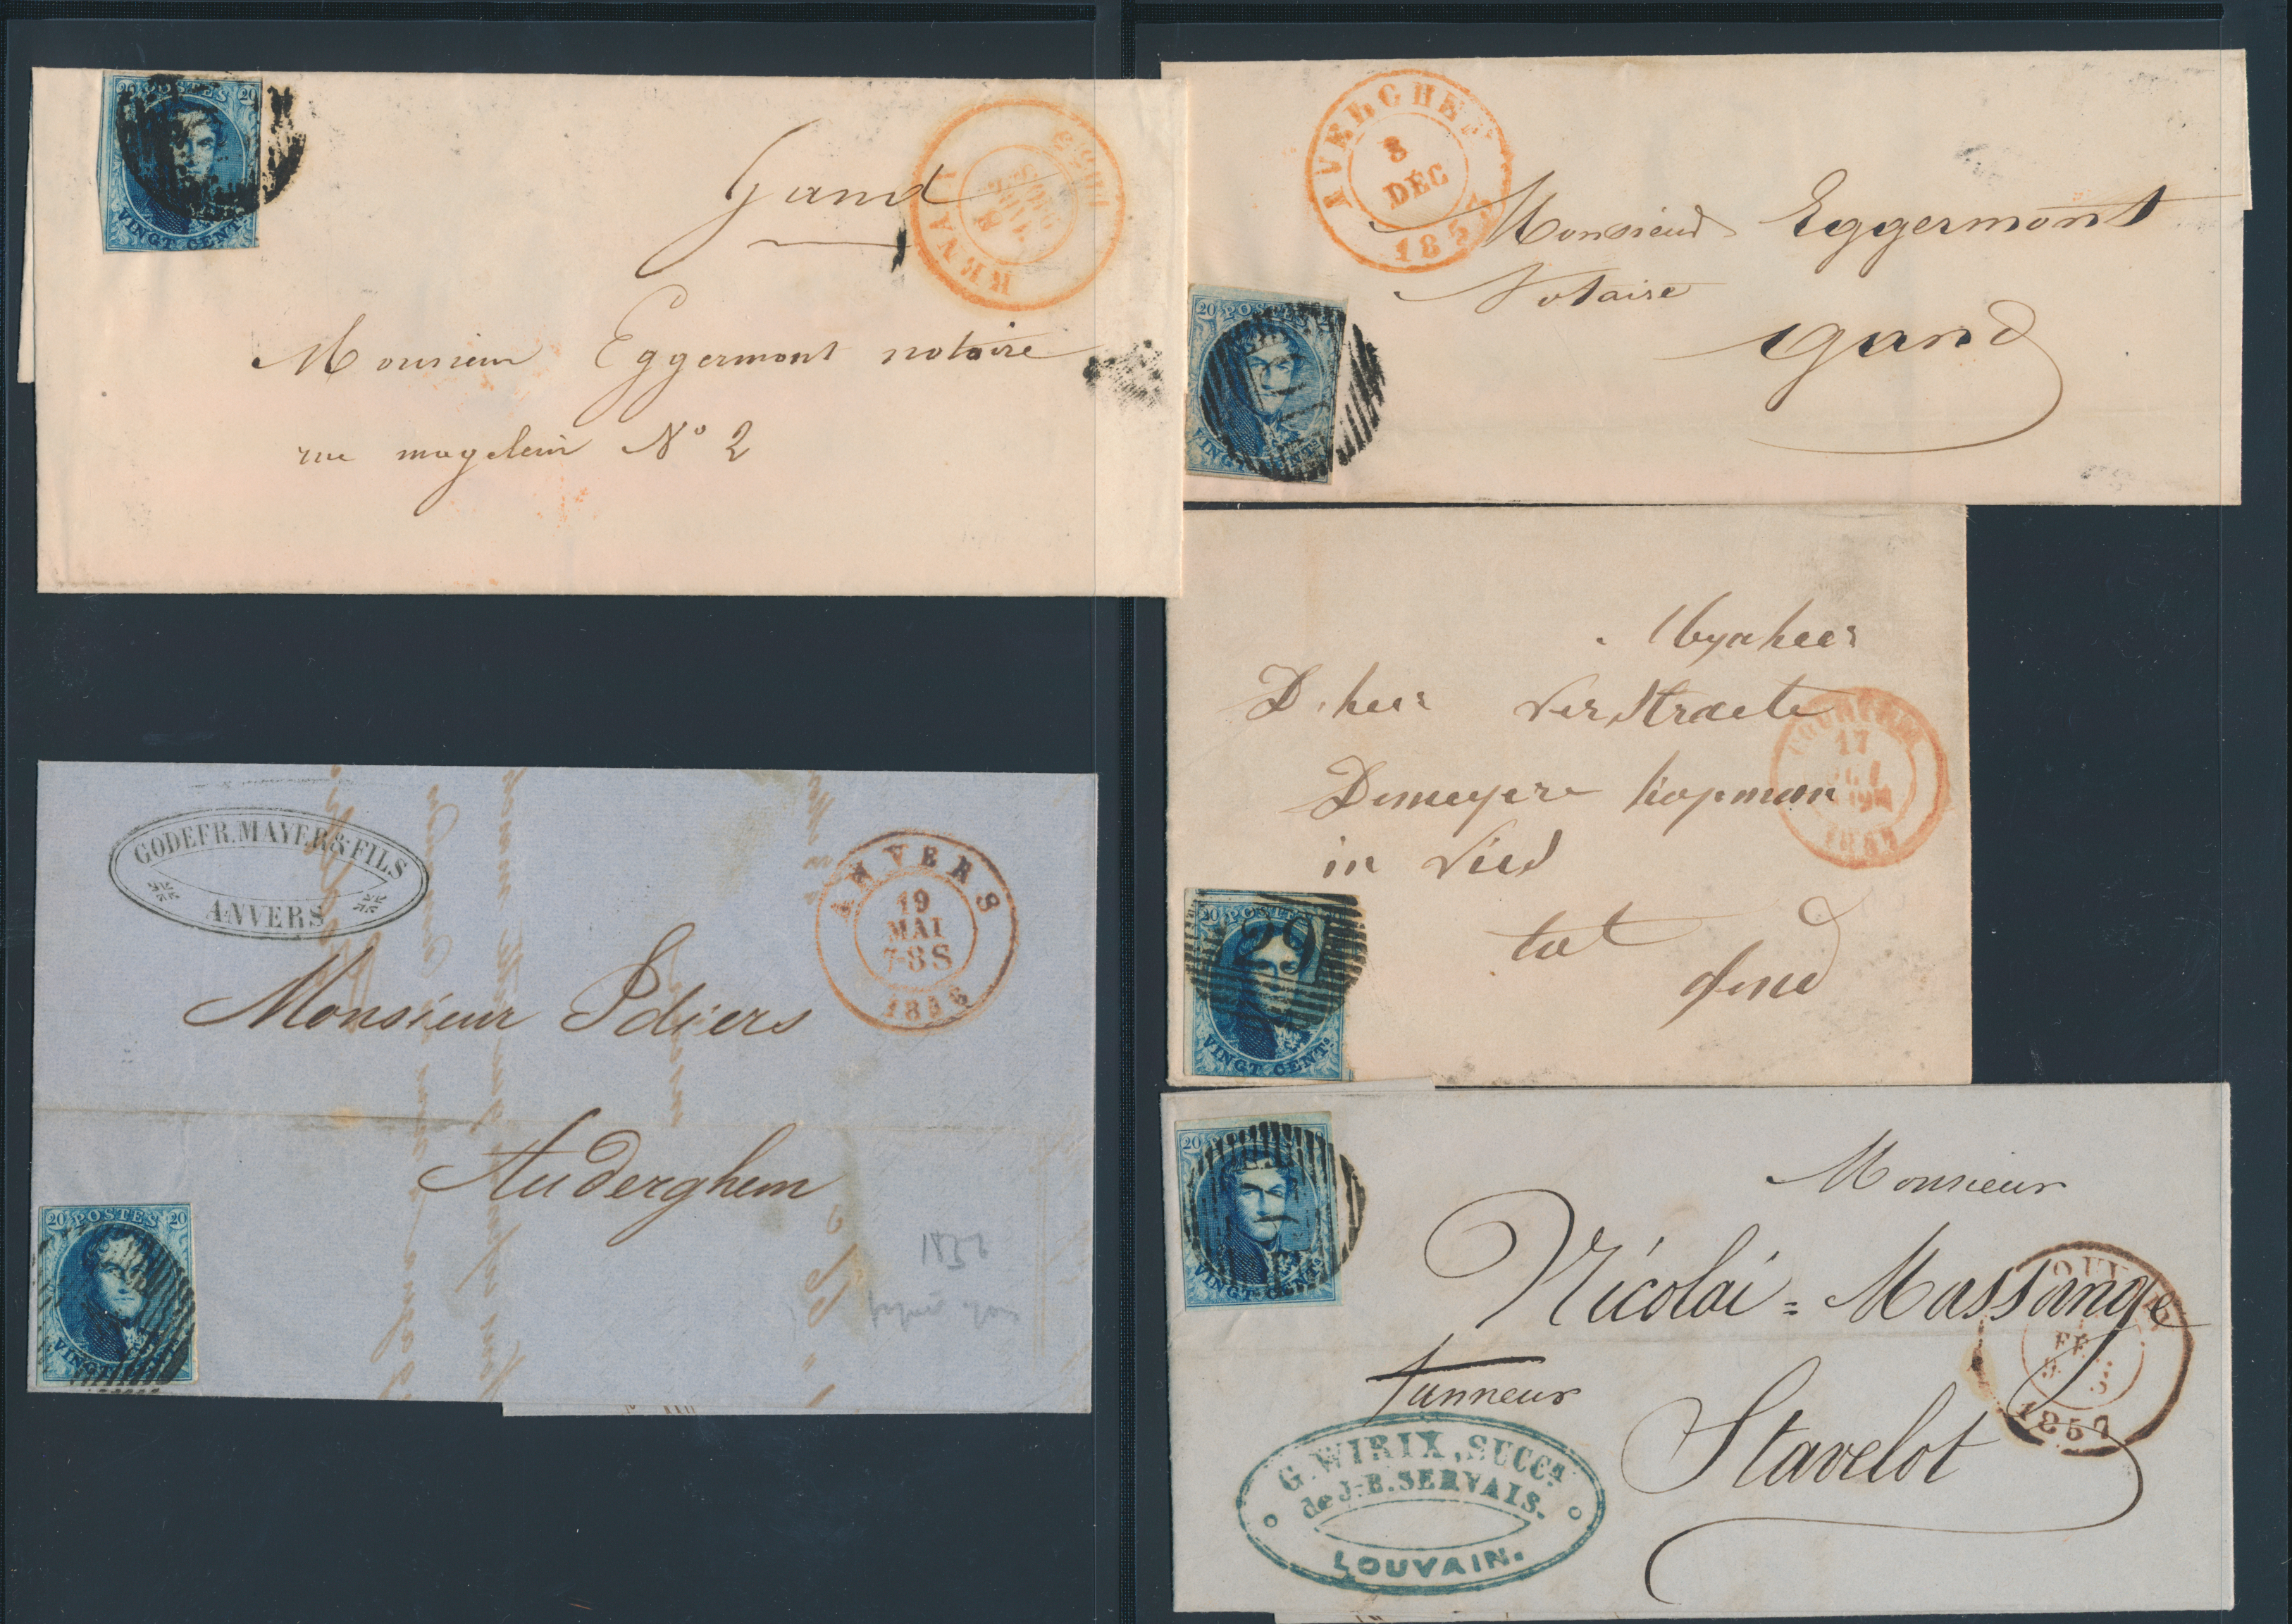 20 POSTES 20
VINGT CENT
Gand
Monsieur Eggermont notaire
rue magelein No 2
AVERGHEM
8
DEC
185
Monsieur Eggermont
Notaire
Gand
20 POSTES
VINGT CENTS
D. heer Verstraete
Demeyere kopman
in
tot
Gend
17
20 POSTES
29
VINGT CENTS
GODEFR. MAYER & FILS
ANVERS
ANVERS
19
MAI
7-8 S
1856
Monsieur Pdiers
Auderghem
1856
20 POSTES 20
VINGT
20
VINGT CENTS
Monsieur
Nicolai = Massange
tanneur
Stavelot
1857
G. WIRIX, SUCCR
de J-B. SERVAIS.
LOUVAIN.